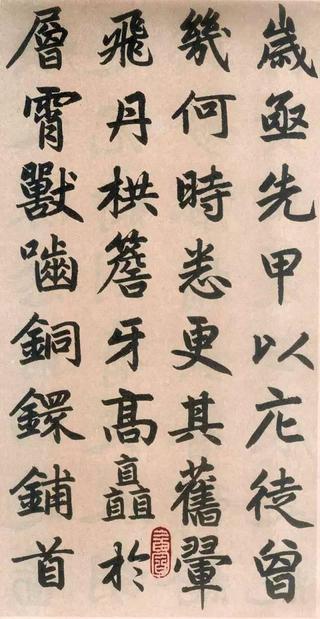 歲亟先甲以庀徒曾
幾何時悉更其舊翬
飛丹栱簷牙高矗於
層霄獸噛銅鐶鋪首